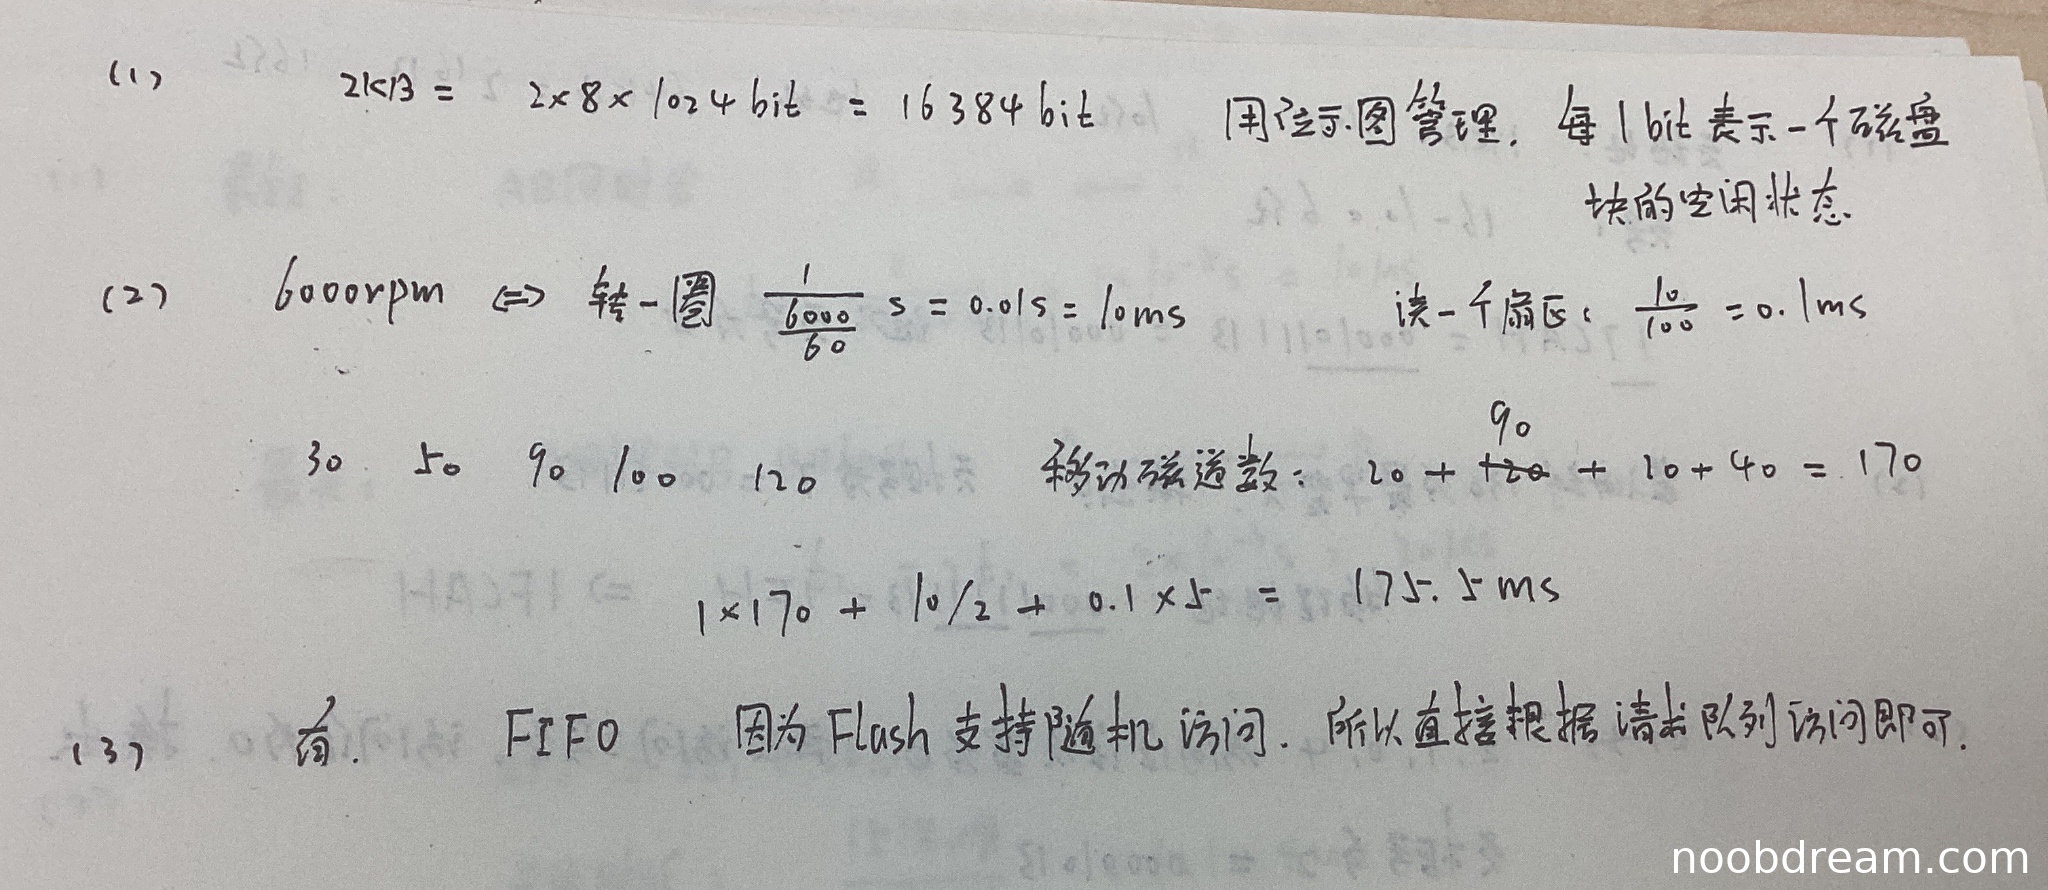 (1) 2KB = 2×8×1024 bit = 16384 bit 用位示图管理. 每1 bit表示一个磁盘
块的空闲状态.
(2) 6000rpm <=> 转一圈 1/(6000/60) s = 0.01s = 10ms 读一个扇区: 10/100 = 0.1ms
90
30 50 90 100 120 移动磁道数: 20 + 120 + 20 + 40 = 170
1×170 + 10/2 + 0.1×5 = 175.5ms
(3) 有. FIFO 因为Flash支持随机访问. 所以直接根据请求队列访问即可.
noobdream.com